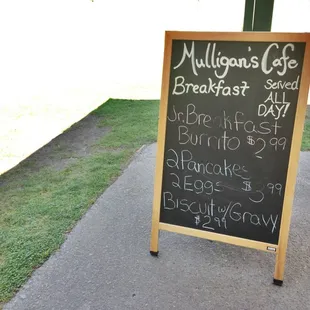 Mulligan's Cafe
Breakfast Served
ALL
DAY!
Jr. Breakfast
Burrito $2.99
2 Pancakes
2 Eggs $3.99
Biscuit w/ Gravy
$2.99